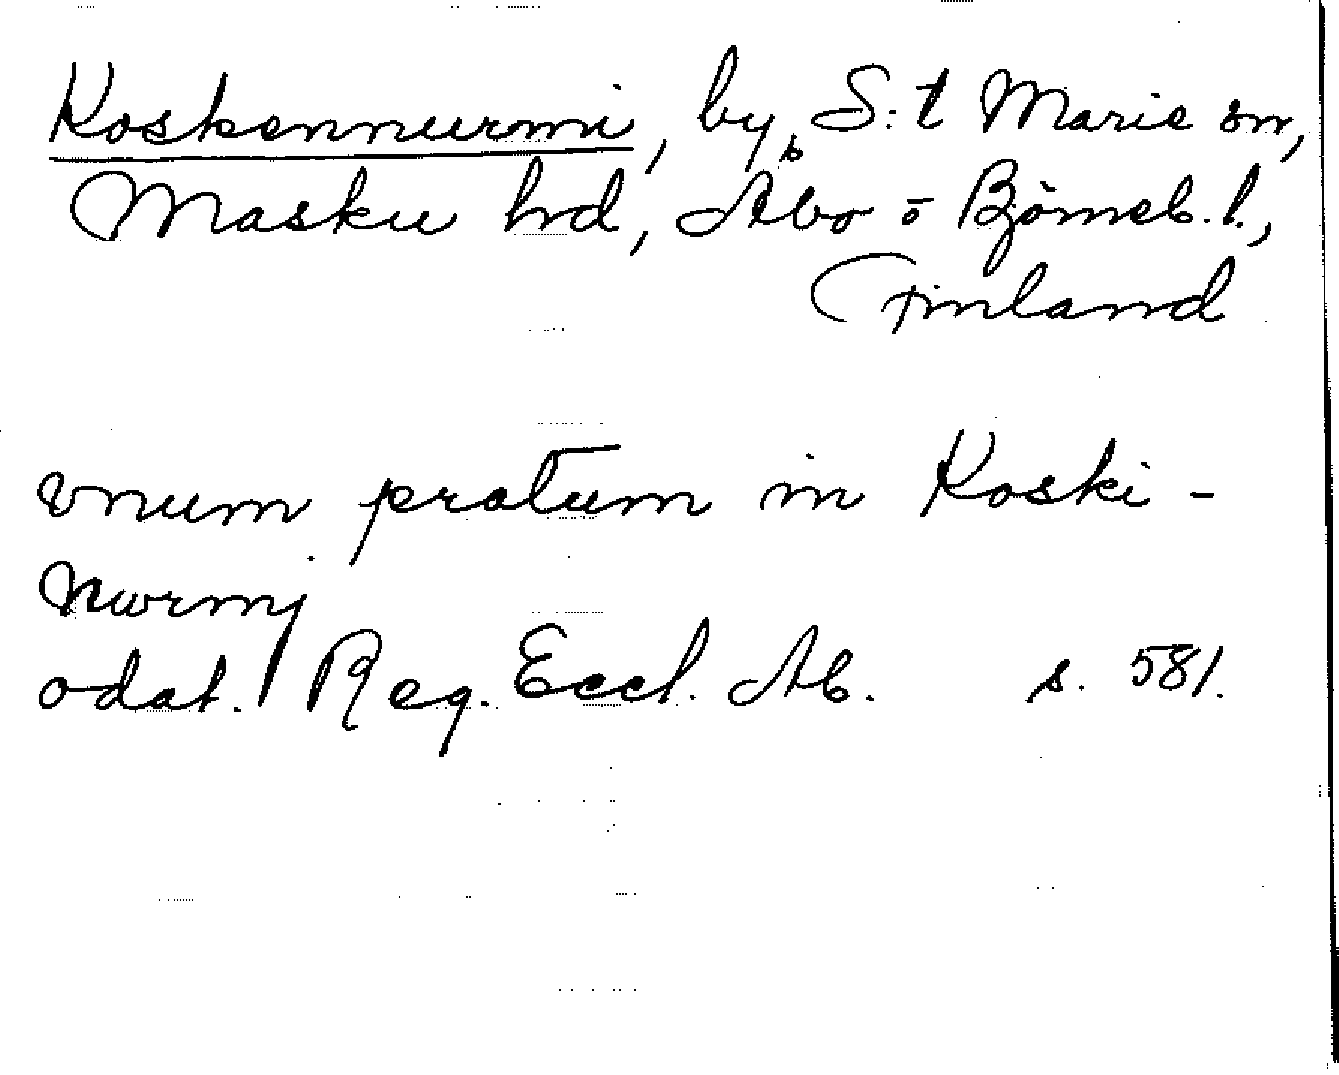 Koskennurmi, by, S:t Marie sn,
Masku hrd, Åbo o Björneb. l.,
Finland
vnum pratum in Koski-
Nurmj
odat. Reg. Eccl. Ab. s. 581.